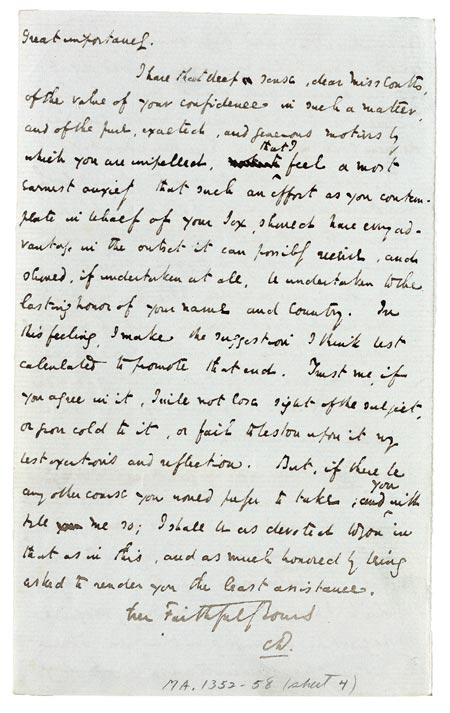 Great importance.
I have that deep sense, dear Miss Coutts,
of the value of your confidence in such a matter,
and of the pure, exalted, and generous motives by
which you are impelled, that I feel a most
earnest anxiety that such an effort as you contem-
plate in behalf of your Sex, should have every ad-
vantage in the outset it can possibly receive, and
should, if undertaken at all, be undertaken to the
lasting honor of your name and Country. In
this feeling, I make the suggestion I think best
calculated to promote that end. Trust me, if
you agree in it, I will not lose sight of the subject,
or grow cold to it, or fail to bestow upon it my
best exertions and reflection. But, if there be
any other course you would prefer to take; and you will
tell me so; I shall be as devoted to you in
that as in this, and as much honored by being
asked to render you the least assistance.
Ever Faithfully Yours
CD.
MA. 1352-58 (sheet 4)